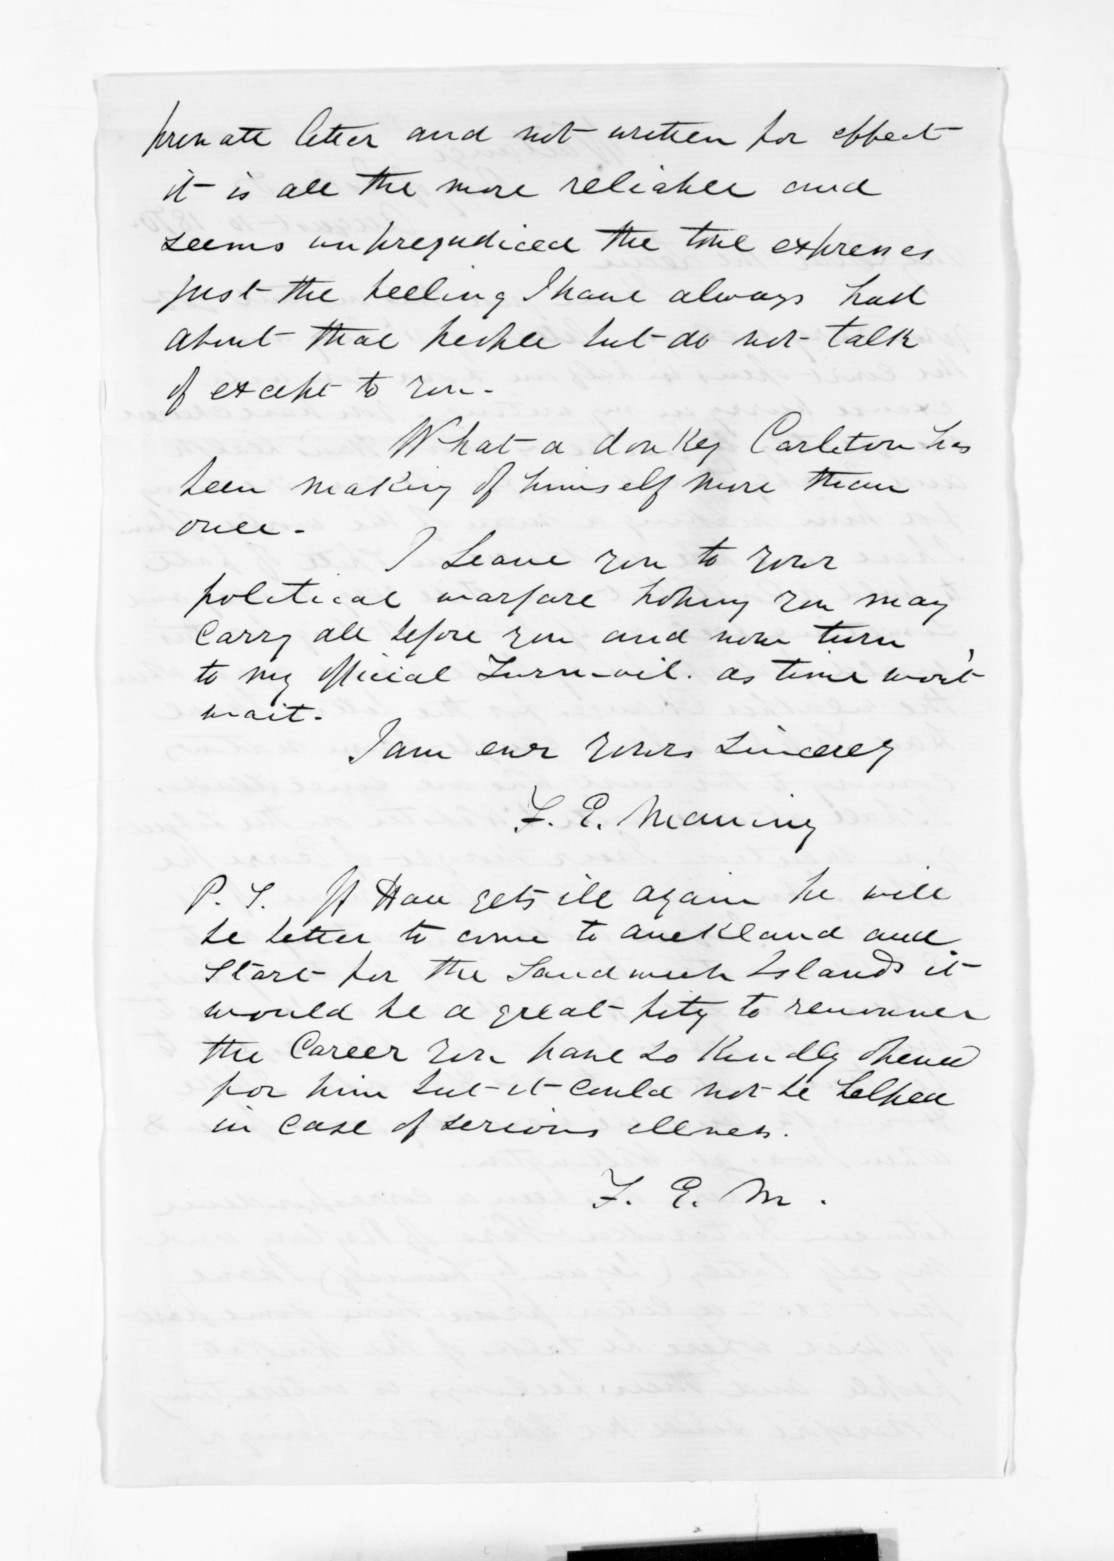 private letter and not written for effect
it is all the more reliable and
seems unprejudiced the tone expresses
just the feeling I have always had
about that people but do not talk
of except to you.
What a donkey Carleton has
been making of himself more than
once.
I leave you to your
political warfare hoping you may
carry all before you and now turn
to my official Turmoil. as time won't
wait.
I am ever yours sincerely
F. E. Maning
P. S. If Hau gets ill again he will
be better to come to auckland and
start for the Sandwich Islands it
would be a great pity to renounce
the Career you have so kindly opened
for him but it could not be helped
in case of serious illness.
F. E. M.